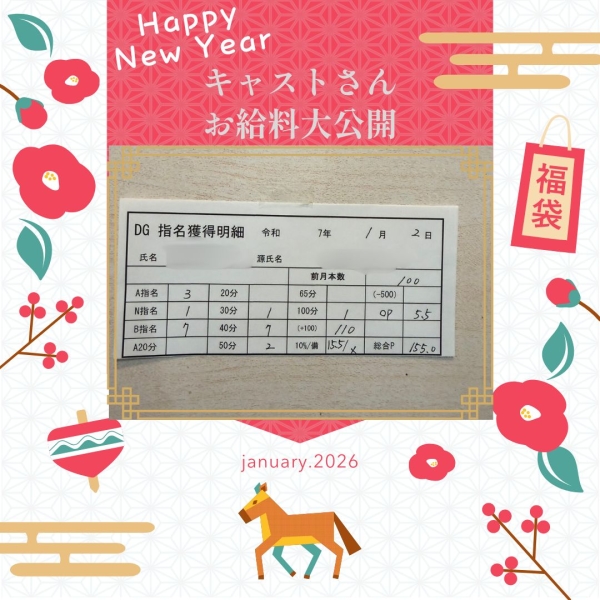 Happy
New Year
キャストさん
お給料大公開
福袋
DG 指名獲得明細 令和 7年 1月 2日
氏名 源氏名
前月本数 100
A指名 3 20分 65分 (-500)
N指名 1 30分 1 100分 1 OP 5.5
B指名 7 40分 7 (+100) 110
A20分 50分 2 10%/備 155/x 総合P 155.0
january.2026